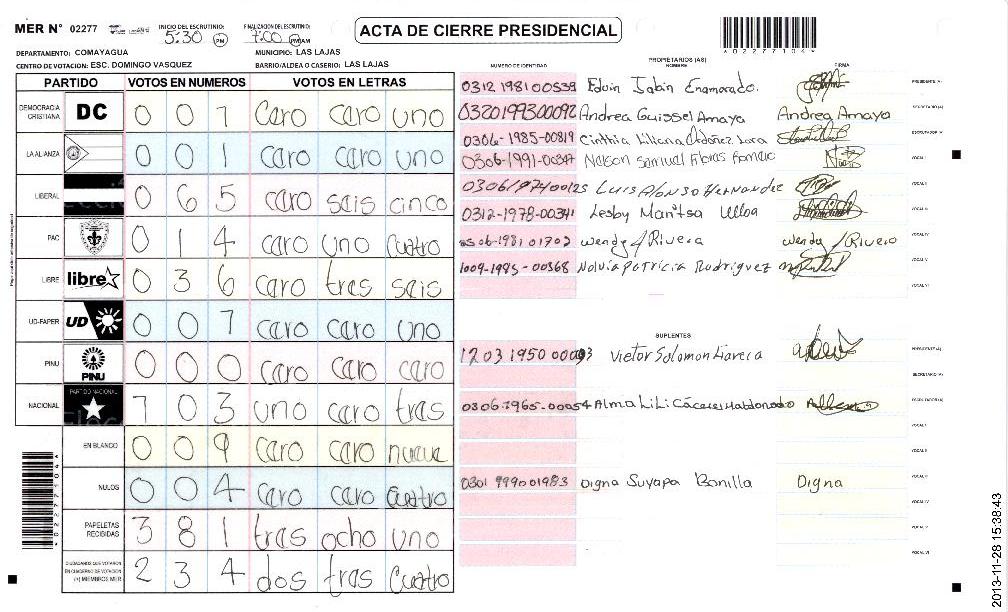 MER N° 02277 INICIO DEL ESCRUTINIO: 5:30 PM FINALIZACION DEL ESCRUTINIO: 7:00 PM AM
ACTA DE CIERRE PRESIDENCIAL
A02277104
DEPARTAMENTO: COMAYAGUA MUNICIPIO: LAS LAJAS
CENTRO DE VOTACION: ESC. DOMINGO VASQUEZ BARRIO/ALDEA O CASERIO: LAS LAJAS
PARTIDO VOTOS EN NUMEROS VOTOS EN LETRAS
DEMOCRACIA CRISTIANA DC 0 0 1 caro caro uno
LA ALIANZA 0 0 1 caro caro uno
LIBERAL 0 6 5 caro seis cinco
PAC 0 1 4 caro uno cuatro
LIBRE libre 0 3 6 caro tras seis
UD-FAPER UD 0 0 1 caro caro uno
PINU PINU 0 0 0 caro caro caro
NACIONAL PARTIDO NACIONAL 1 0 3 uno caro tras
EN BLANCO 0 0 9 caro caro nueve
NULOS 0 0 4 caro caro cuatro
PAPELETAS RECIBIDAS 3 8 1 tras ocho uno
CIUDADANOS QUE VOTARON EN CUADERNO DE VOTACION (+) MIEMBROS MER 2 3 4 dos tras cuatro
PROPIETARIOS (AS)
NUMERO DE IDENTIDAD NOMBRE FIRMA
0312 1981 00539 Edvin Jabin Enamorado. PRESIDENTE (A)
0320199300092 Andrea Guissel Amaya Andrea Amaya SECRETARIO (A)
0306-1985-00819 Cinthia Liliana Ordoñez Lara ESCRUTADOR (A)
0306-1991-00347 Nelson Samuel Flores VOCAL I
0306197400125 Luis Alonso Hernandez VOCAL II
0312-1978-00341 Lesby Maritsa Ulloa VOCAL III
0506-1981 01702 Wendy J Rivera Wendy J Rivera VOCAL IV
1009-1985-00368 Nolvia Patricia Rodriguez VOCAL V
VOCAL VI
SUPLENTES
1203 1950 00093 Victor Solomon PRESIDENTE (A)
SECRETARIO (A)
0306-1965-00054 Alma LiLi Cáceres Maldonado ESCRUTADOR (A)
VOCAL I
VOCAL II
0301 1999001983 Digna Suyapa Bonilla Digna VOCAL III
VOCAL IV
VOCAL V
VOCAL VI
2013-11-28 15:38:43